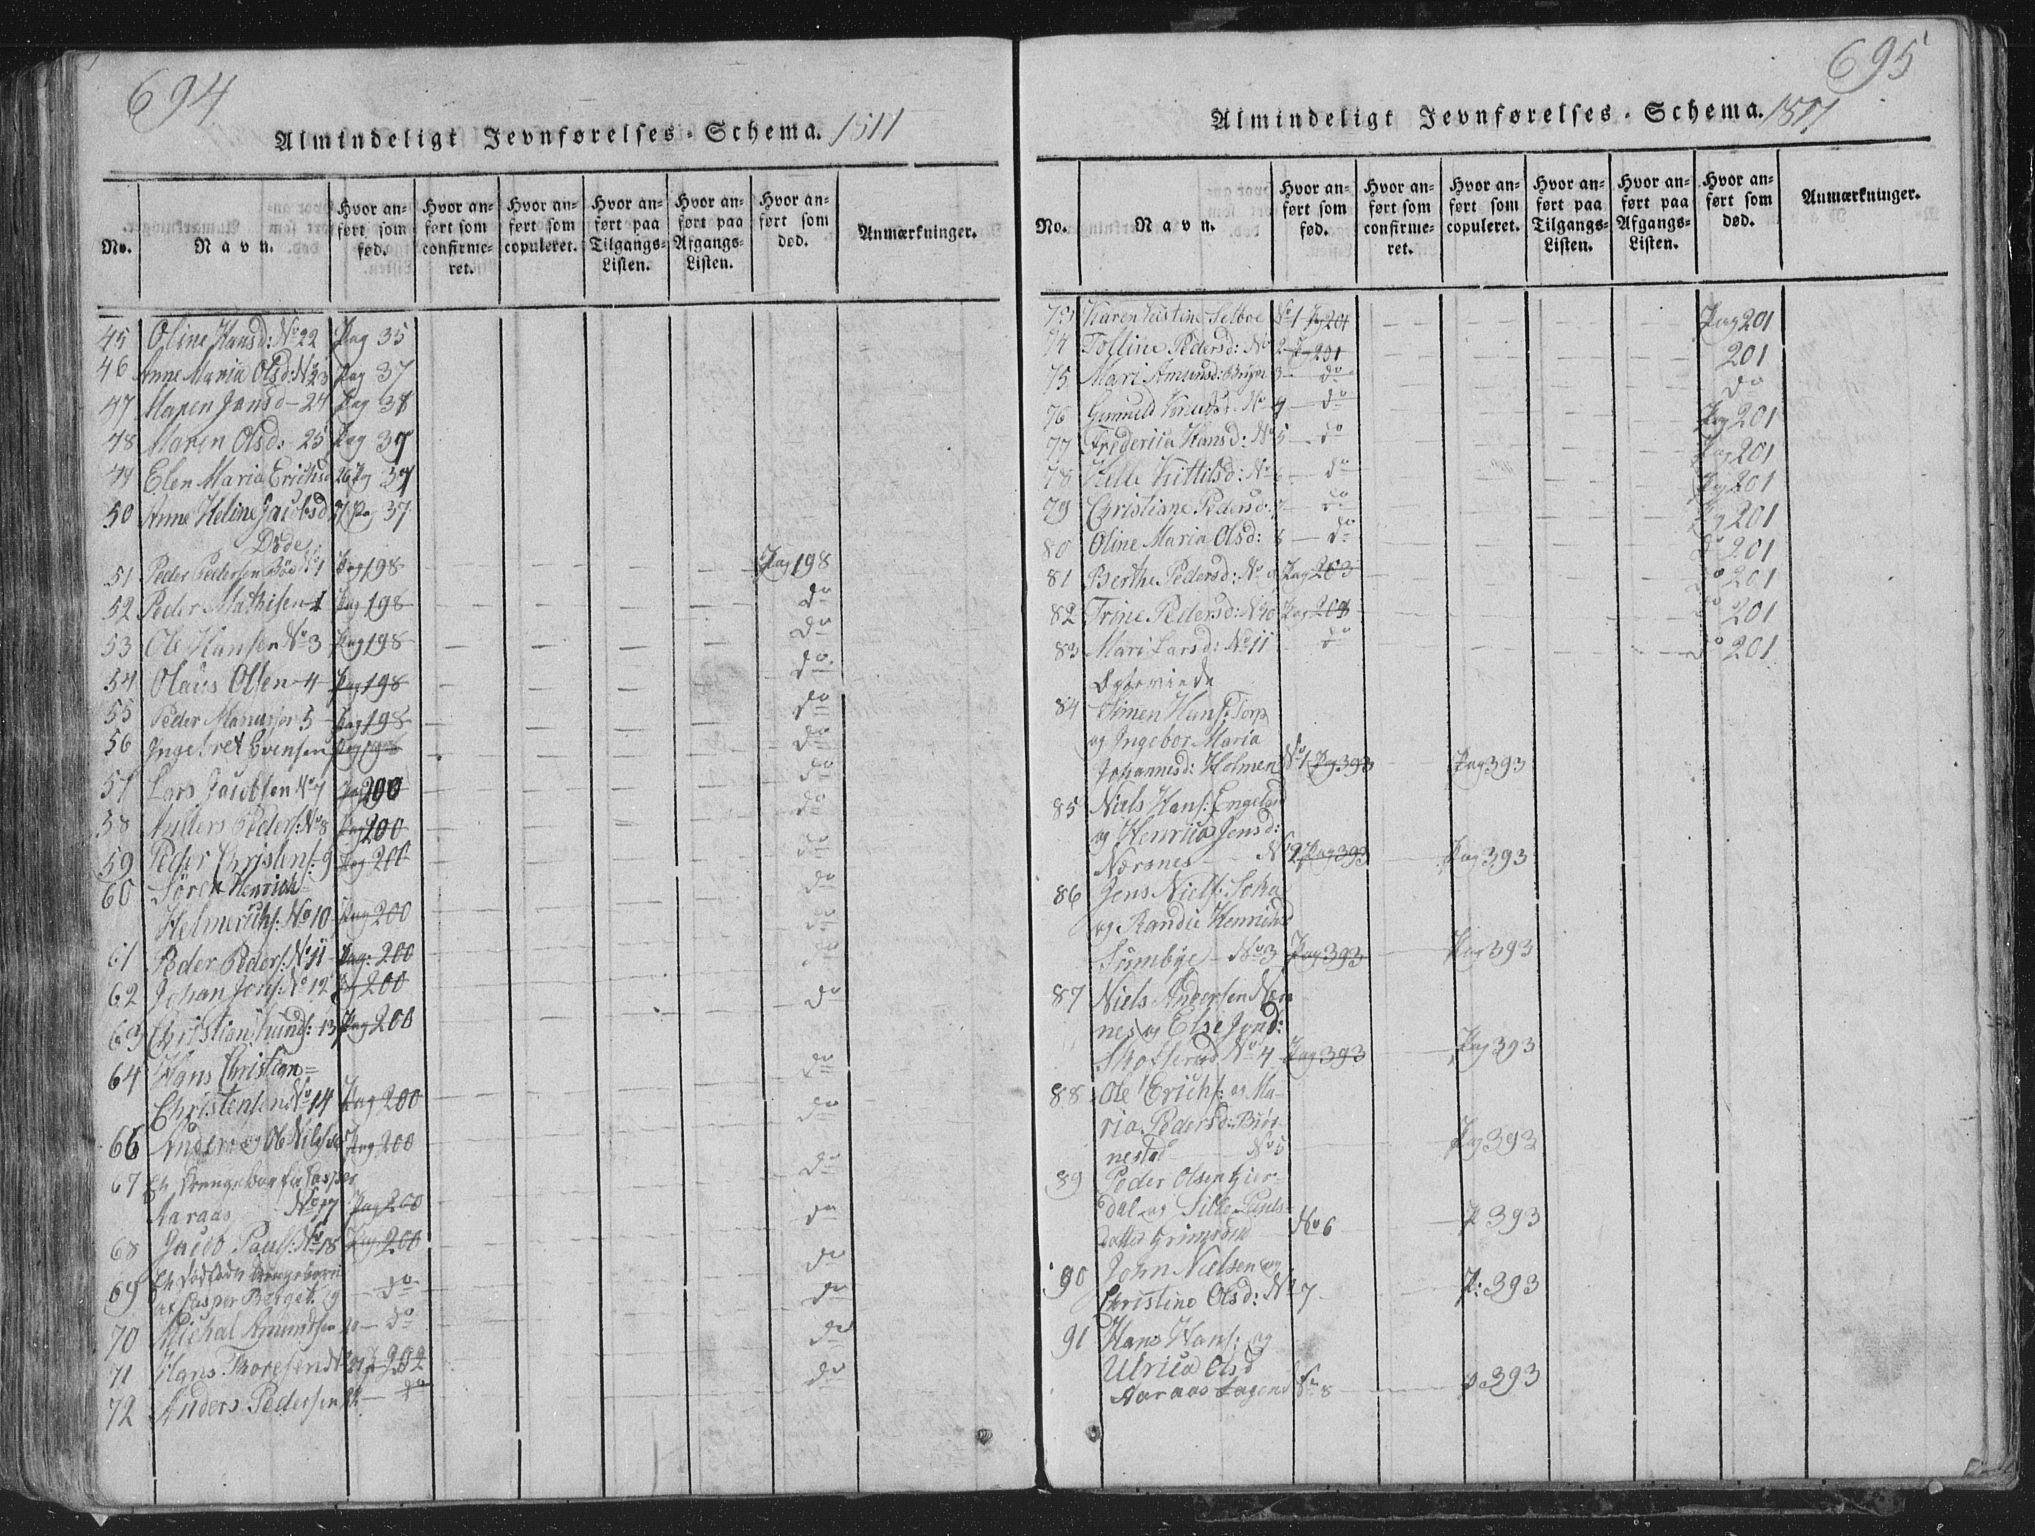 694
Almindeligt Jevnførelses-Schema. 1817
No.
Navn.
Hvor anført som fød.
Hvor anført som confirmeret.
Hvor anført som copuleret.
Hvor anført paa Tilgangs-Listen.
Hvor anført paa Afgangs-Listen.
Hvor anført som død.
Anmærkninger.
45 Oline Hansd: No 22 Pag 35
46 Anne Maria Olsd: No 23 Pag 37
47 Maren Jansd - 24 Pag 38
48 Maren Olsd: 25 Pag 37
49 Elen Maria Erichsd 26 Pag 37
50 Anne Heline Jacobsd 27 Pag 37
Døde
51 Peder Pedersen No 1 Pag 198 Pag 198
52 Peder Mathisen Pag 198 do
53 Ole Hansen No 3 Pag 198 do
54 Olaus Olsen - 4 Pag 198 do
55 Peder 5 Pag 198 do
56 Ingebret Evensen Pag 198 do
57 Lars Jacobsen No 7 Pag 200 do
58 Anders Peders: No 8 Pag 200 do
59 Peder Christens: 9 Pag 200 do
60 Sören Henrich
Helmerichs: No 10 Pag 200 do
61 Peder Peders: No 11 Pag: 200 do
62 Johan Jons: No 12 Pag 200 do
63 Christian 13 Pag 200
64 Hans Christian=
Christensen No 14 Pag 200 do
66 Anders og Ole Nilssen Pag 200 do
67 Et Drengebarn fra Casper
Aaraas No 17 Pag 200 do
68 Jacob Pauls: No 18 Pag 200 do
69 Et dödfödt Drengebarn
af Casper Berget. 19 do do
70 Michal Amundsen 20 - do do
71 Hans Thoresen No 21 P 202 do
72 Anders Pedersen 22 - do do
695
Almindeligt Jevnførelses-Schema. 1817
No.
Navn.
Hvor anført som fød.
Hvor anført som confirmeret.
Hvor anført som copuleret.
Hvor anført paa Tilgangs-Listen.
Hvor anført paa Afgangs-Listen.
Hvor anført som død.
Anmærkninger.
73 Karen Kistine Selboe No 1 Pag 201 Pag 201
74 Tolline Pedersd: No 2 Pag 201 201
75 Mari Amunsd: 3 - do do
76 Gunnild Knudsd. No 4 - do Pag 201
77 Frederica Hansd: No 5 - do Pag 201
78 Kittilsd: No 6 - do Pag 201
79 Christiane Pedersd. 7 - do Pag 201
80 Oline Maria Olsd: 8 - do do 201
81 Berthe Pedersd: No 9 Pag 203 do 201
82 Trine Pedersd: No 10 Pag 203 do 201
83 Mari Larsd: No 11 do do 201
Egteviede
84 Simen Hans: Torp
og Ingebor Maria
Johannesd: Holmen No 1 Pag 393 Pag 393
85 Niels Hans: Engelsd
og Henrica Jensd:
Nærsnes No 2 Pag 393 Pag 393
86 Jens Niels:
og Randie Henrichsd
Sundbye - No 3 Pag 393 Pag 393
87 Niels Andersen Nær
nes og Else Jonsd:
No 4 Pag 393 Pag 393
88 Ole Erichs: og Ma-
ria Pedersd: Bjør
nestad No 5 Pag 393
89 Peder Olsen Gjer-
dal og Sille Niels
datter Grimsrud No 6 P 393
90 John Nielsen og
Christine Olsd: No 7 P: 393
91 Hans Hans: og
Ulrica Olsd
Aaraas Eagen No 8 P 393